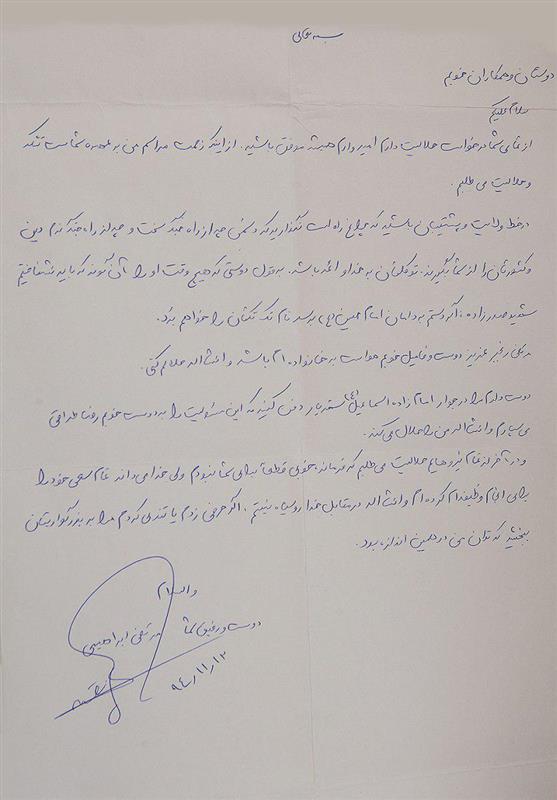 بسمه تعالی
دوستان و همکاران خوبم
سلام علیکم
از تمامی شما درخواست حلالیت دارم امیدوارم همیشه موفق باشید. از اینکه زحمت مراسم من به عهده شماست تشکر
و حلالیت می طلبم.
در خط ولایت و پشتیبان باشید که چراغ راه است نگذارید که دشمن چه از راه جنگ سخت و چه از راه جنگ نرم دین
و کشورتان را از شما بگیرند. توکلتان به خدا و ائمه باشد. به قول دوستی که هیچ وقت او را آن گونه که باید نشناختیم
شهید صدرزاده: اگر دستم به دامان امام حسین (ع) برسد نام تک تکتان را خواهم برد.
عزیز دوست و فامیل خوبم حواست به خانواده ام باشد و انشااله حلالم کنی.
دوست دارم مرا در جوار امام زاده اسماعیل (ع) دفن کنید که این مسئولیت را به دوست خوبم رضا
می سپارم و انشااله من را حلال می کند.
و در آخر از تمام نیروهای حلالیت می طلبم که فرمانده خوبی قطعا برای شما نبودم ولی خدا می داند تمام سعی خود را
برای انجام وظیفه ام کرده ام و انشااله در مقابل خدا روسیاه نیستم. اگر حرفی زدم یا تندی کردم مرا به بزرگواریتان
ببخشید که توان من در همین اندازه بود.
والسلام
دوست و رفیق شما مرتضی ابراهیمی
۹۴/۱۱/۱۲